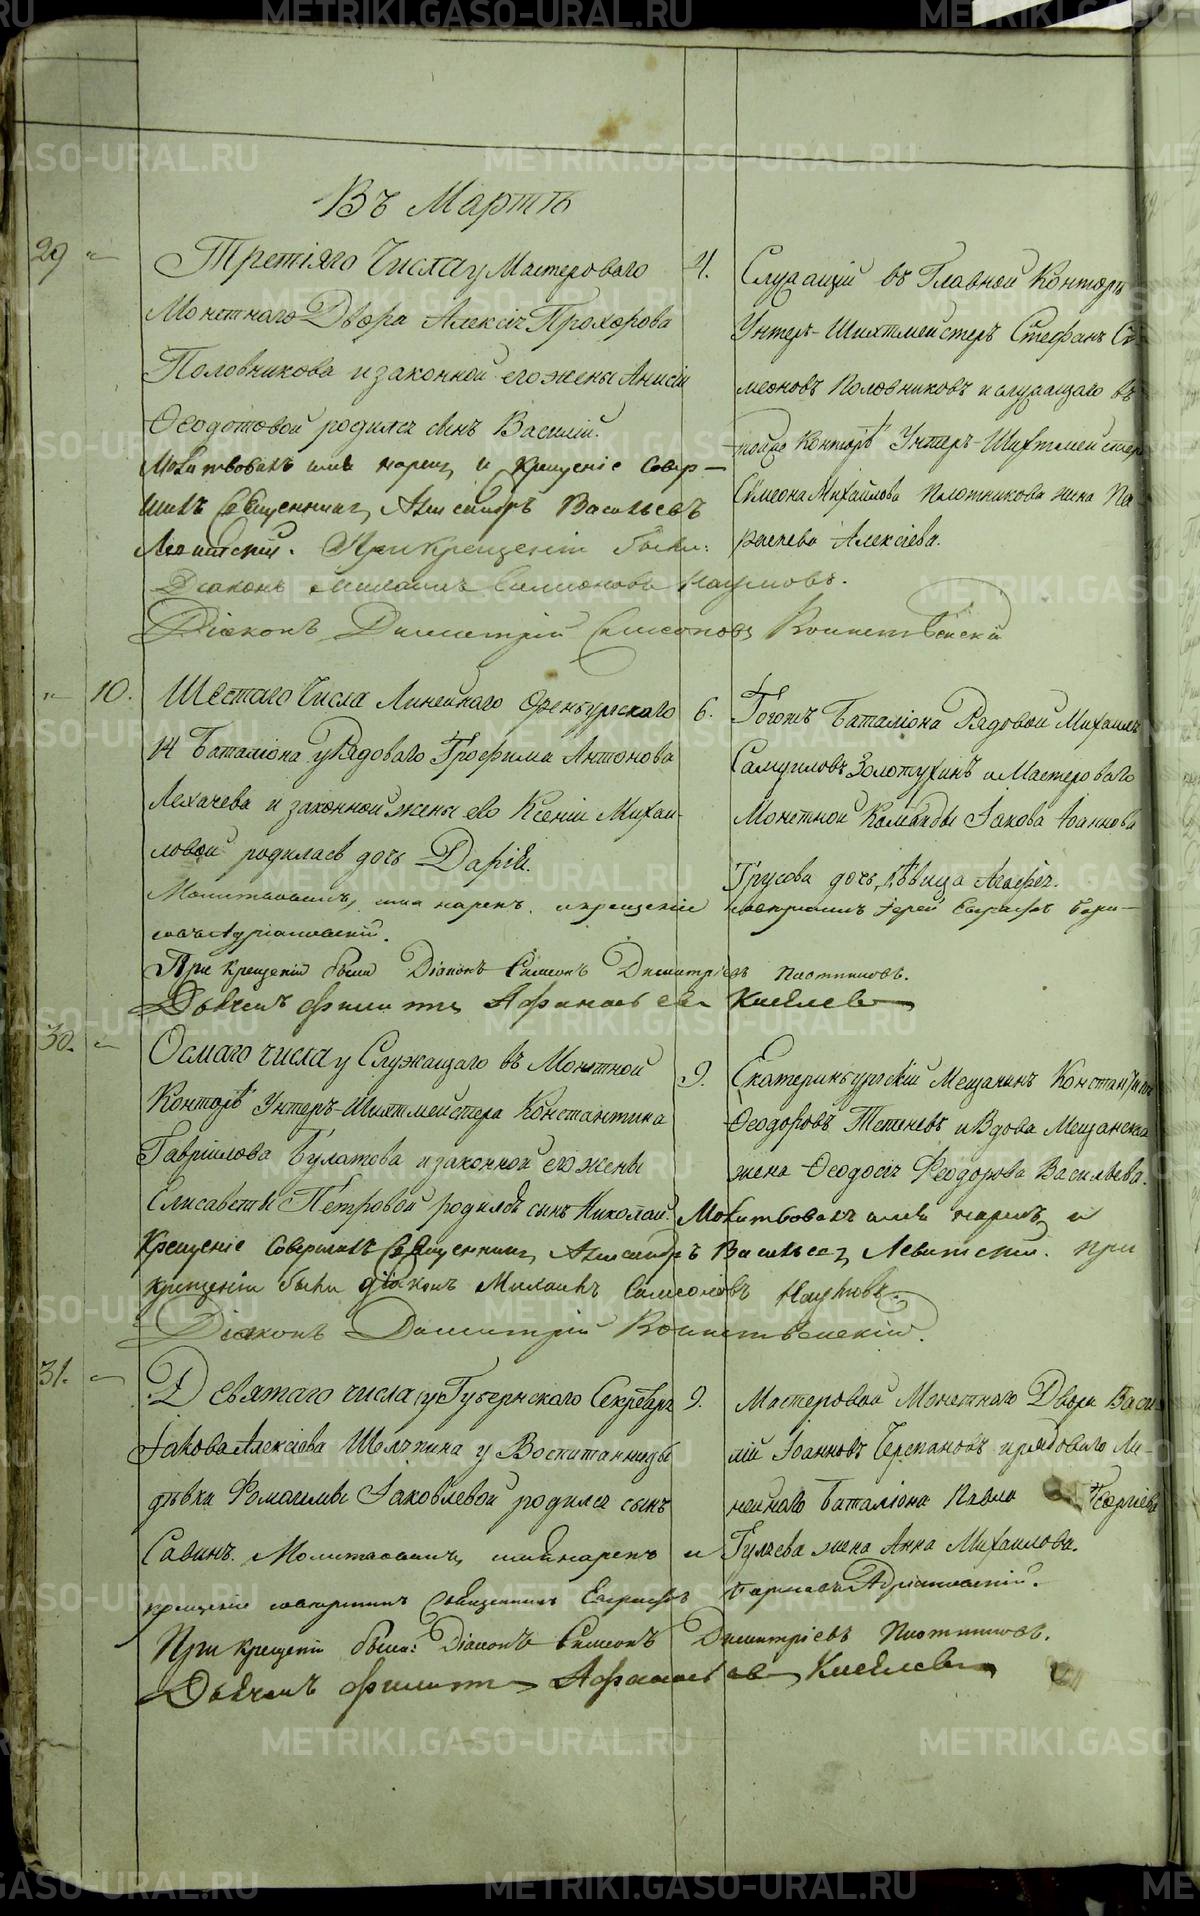 Въ Мартѣ
29 "
Третіяго Числа у Мастероваго
Монетнаго Двора Алексія Прохорова
Половникова и законной его жены Анисіи
Ѳеодотовой родился сынъ Василій.
Молитвовалъ имя нарекъ и Крещеніе Совер-
шилъ Священникъ Александръ Васильевъ
Левитскій. При Крещеніи были:
Діаконъ Михаилъ Симеоновъ Наумовъ.
Діаконъ Димитрій Симеоновъ Воинственскій
4.
Служащій въ Главной Конторѣ
Унтеръ-Шихтмейстеръ Стефанъ Си-
меоновъ Половниковъ и служащаго въ
той же Конторѣ Унтеръ-Шихтмейстера
Симеона Михайлова Плотникова жена Па-
раскева Алексіева.
" 10.
Шестаго Числа Линейнаго Оренбургскаго
14 Баталіона у Рядоваго Трофима Антонова
Лехачева и законной жены его Ксеніи Михаи-
ловой родилась дочь Дарія.
Молитвовалъ, имя нарекъ и крещеніе совершилъ Іерей Евграфъ Бори-
совъ Адріановскій.
При крещеніи были Діаконъ Симеонъ Димитріевъ Плотниковъ.
Дьячекъ Филиппъ Афанасьевъ Киселевъ
6.
Тогожъ Баталіона Рядовой Михаилъ
Самуиловъ Золотухинъ и Мастероваго
Монетной Команды Іакова Іоаннова
Трусова дочь, дѣвица Агафія.
30. "
Осмаго числа у Служащаго въ Монетной
Конторѣ Унтеръ-Шихтмейстера Константина
Гавріилова Булатова и законной его жены
Елисаветы Петровой родился сынъ Николай. Молитвовалъ имя нарекъ и
Крещеніе Совершилъ Священникъ Александръ Васильевъ Левитскій. При
крещеніи были діаконъ Михаилъ Симеоновъ Наумовъ.
Діаконъ Димитрій Воинственскій.
9.
Екатеринбургскій Мещанинъ Константинъ
Ѳеодоровъ Тетеневъ и Вдова Мещанская
жена Ѳеодосія Феодорова Васильева.
31. "
Девятаго числа у Губернскаго Секретаря
Іакова Алексіева Шелчкина у Воспитанницы
дѣвки Фомаиды Іаковлевой родился сынъ
Савинъ. Молитвовалъ, имя нарекъ и
крещеніе совершилъ Священникъ Евграфъ Борисовъ Адріановскій.
При крещеніи были: Діаконъ Симеонъ Димитріевъ Плотниковъ.
Дьячекъ Филиппъ Афанасьевъ Киселевъ
9.
Мастеровой Монетнаго Двора Васи-
лій Іоанновъ Черепановъ и рядоваго Ли-
нейнаго Баталіона Павла Георгіева
Гуляева жена Анна Михаилова.